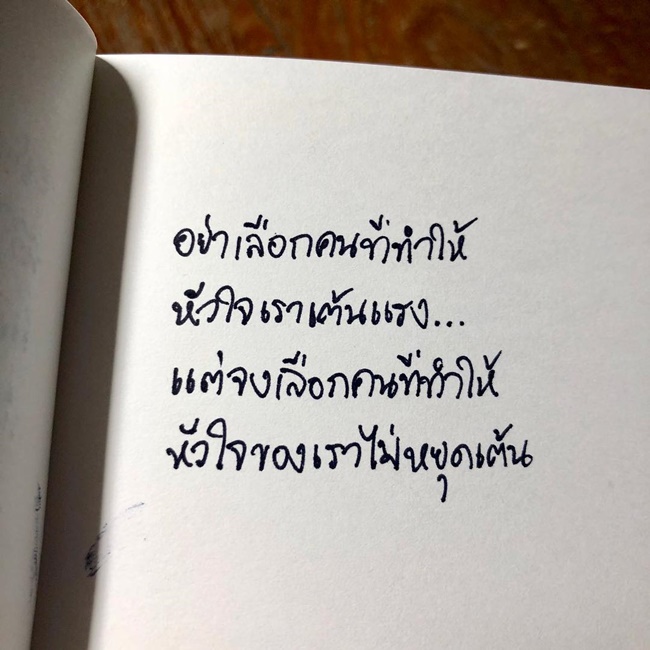 อย่าเลือกคนที่ทำให้
หัวใจเราเต้นแรง...
แต่จงเลือกคนที่ทำให้
หัวใจของเราไม่หยุดเต้น